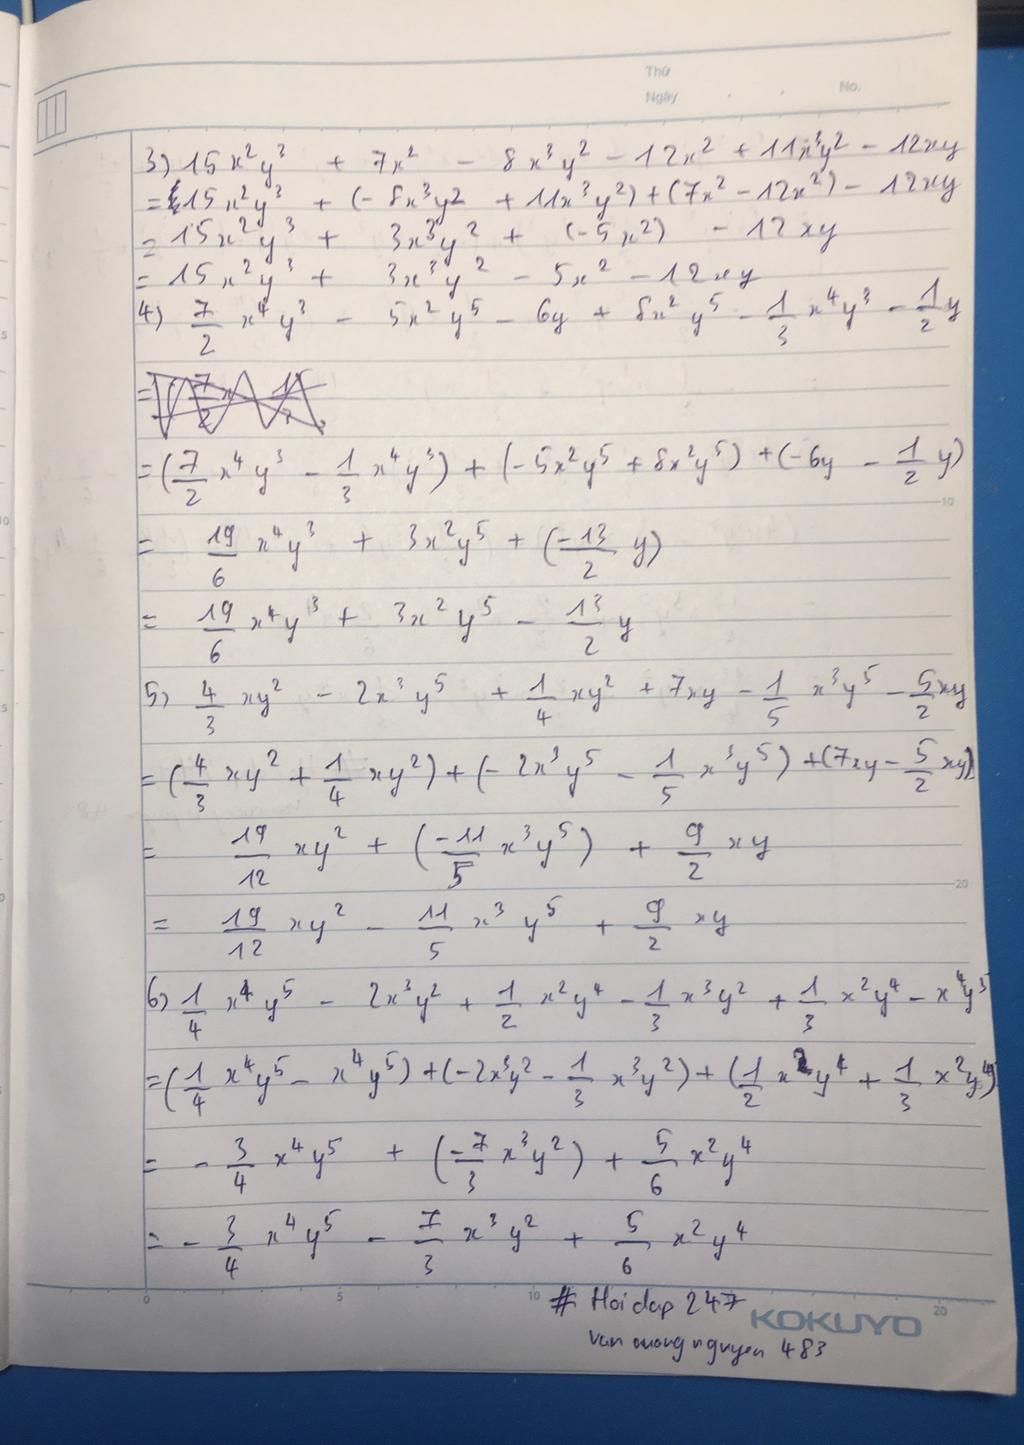 Thứ
Ngày . . No.
3) 15x²y³ + 7x² - 8x³y² - 12x² + 11x³y² - 12xy
= 15x²y³ + (-8x³y² + 11x³y²) + (7x² - 12x²) - 12xy
= 15x²y³ + 3x³y² + (-5x²) - 12xy
= 15x²y³ + 3x³y² - 5x² - 12xy
4) 7/2 x⁴y³ - 5x²y⁵ - 6y + 8x²y⁵ - 1/3 x⁴y³ - 1/2 y
= (7/2 x⁴y³ - 1/3 x⁴y³) + (-5x²y⁵ + 8x²y⁵) + (-6y - 1/2 y)
= 19/6 x⁴y³ + 3x²y⁵ + (-13/2 y)
= 19/6 x⁴y³ + 3x²y⁵ - 13/2 y
5) 4/3 xy² - 2x³y⁵ + 1/4 xy² + 7xy - 1/5 x³y⁵ - 5/2 xy
= (4/3 xy² + 1/4 xy²) + (-2x³y⁵ - 1/5 x³y⁵) + (7xy - 5/2 xy)
= 19/12 xy² + (-11/5 x³y⁵) + 9/2 xy
= 19/12 xy² - 11/5 x³y⁵ + 9/2 xy
6) 1/4 x⁴y⁵ - 2x³y² + 1/2 x²y⁴ - 1/3 x³y² + 1/3 x²y⁴ - x⁴y⁵
= (1/4 x⁴y⁵ - x⁴y⁵) + (-2x³y² - 1/3 x³y²) + (1/2 x²y⁴ + 1/3 x²y⁴)
= - 3/4 x⁴y⁵ + (-7/3 x³y²) + 5/6 x²y⁴
= - 3/4 x⁴y⁵ - 7/3 x³y² + 5/6 x²y⁴
0 5 10 20
# Hoidap 247
KOKUYO
nguyen 483